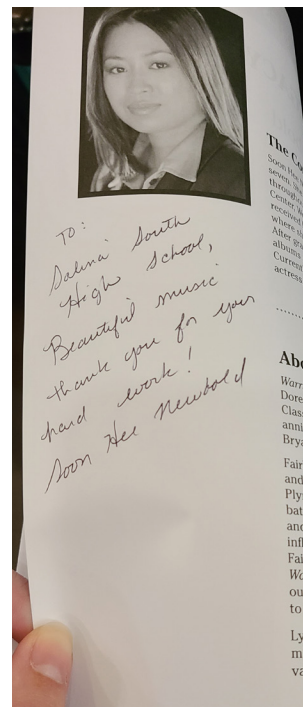 TO:
Salina South
High School,
Beautiful music
thank you for your
hard work!
Soon Hee Newbold
The Co
Soon Hee
seven.
throughou
Center, W
received
where sh
After gra
albums
Current
actress
Abo
Warr
Dore
Class
anni
Brya
Fair
and
Ply
bat
and
infl
Fai
Wo
ou
to
Ly
m
va